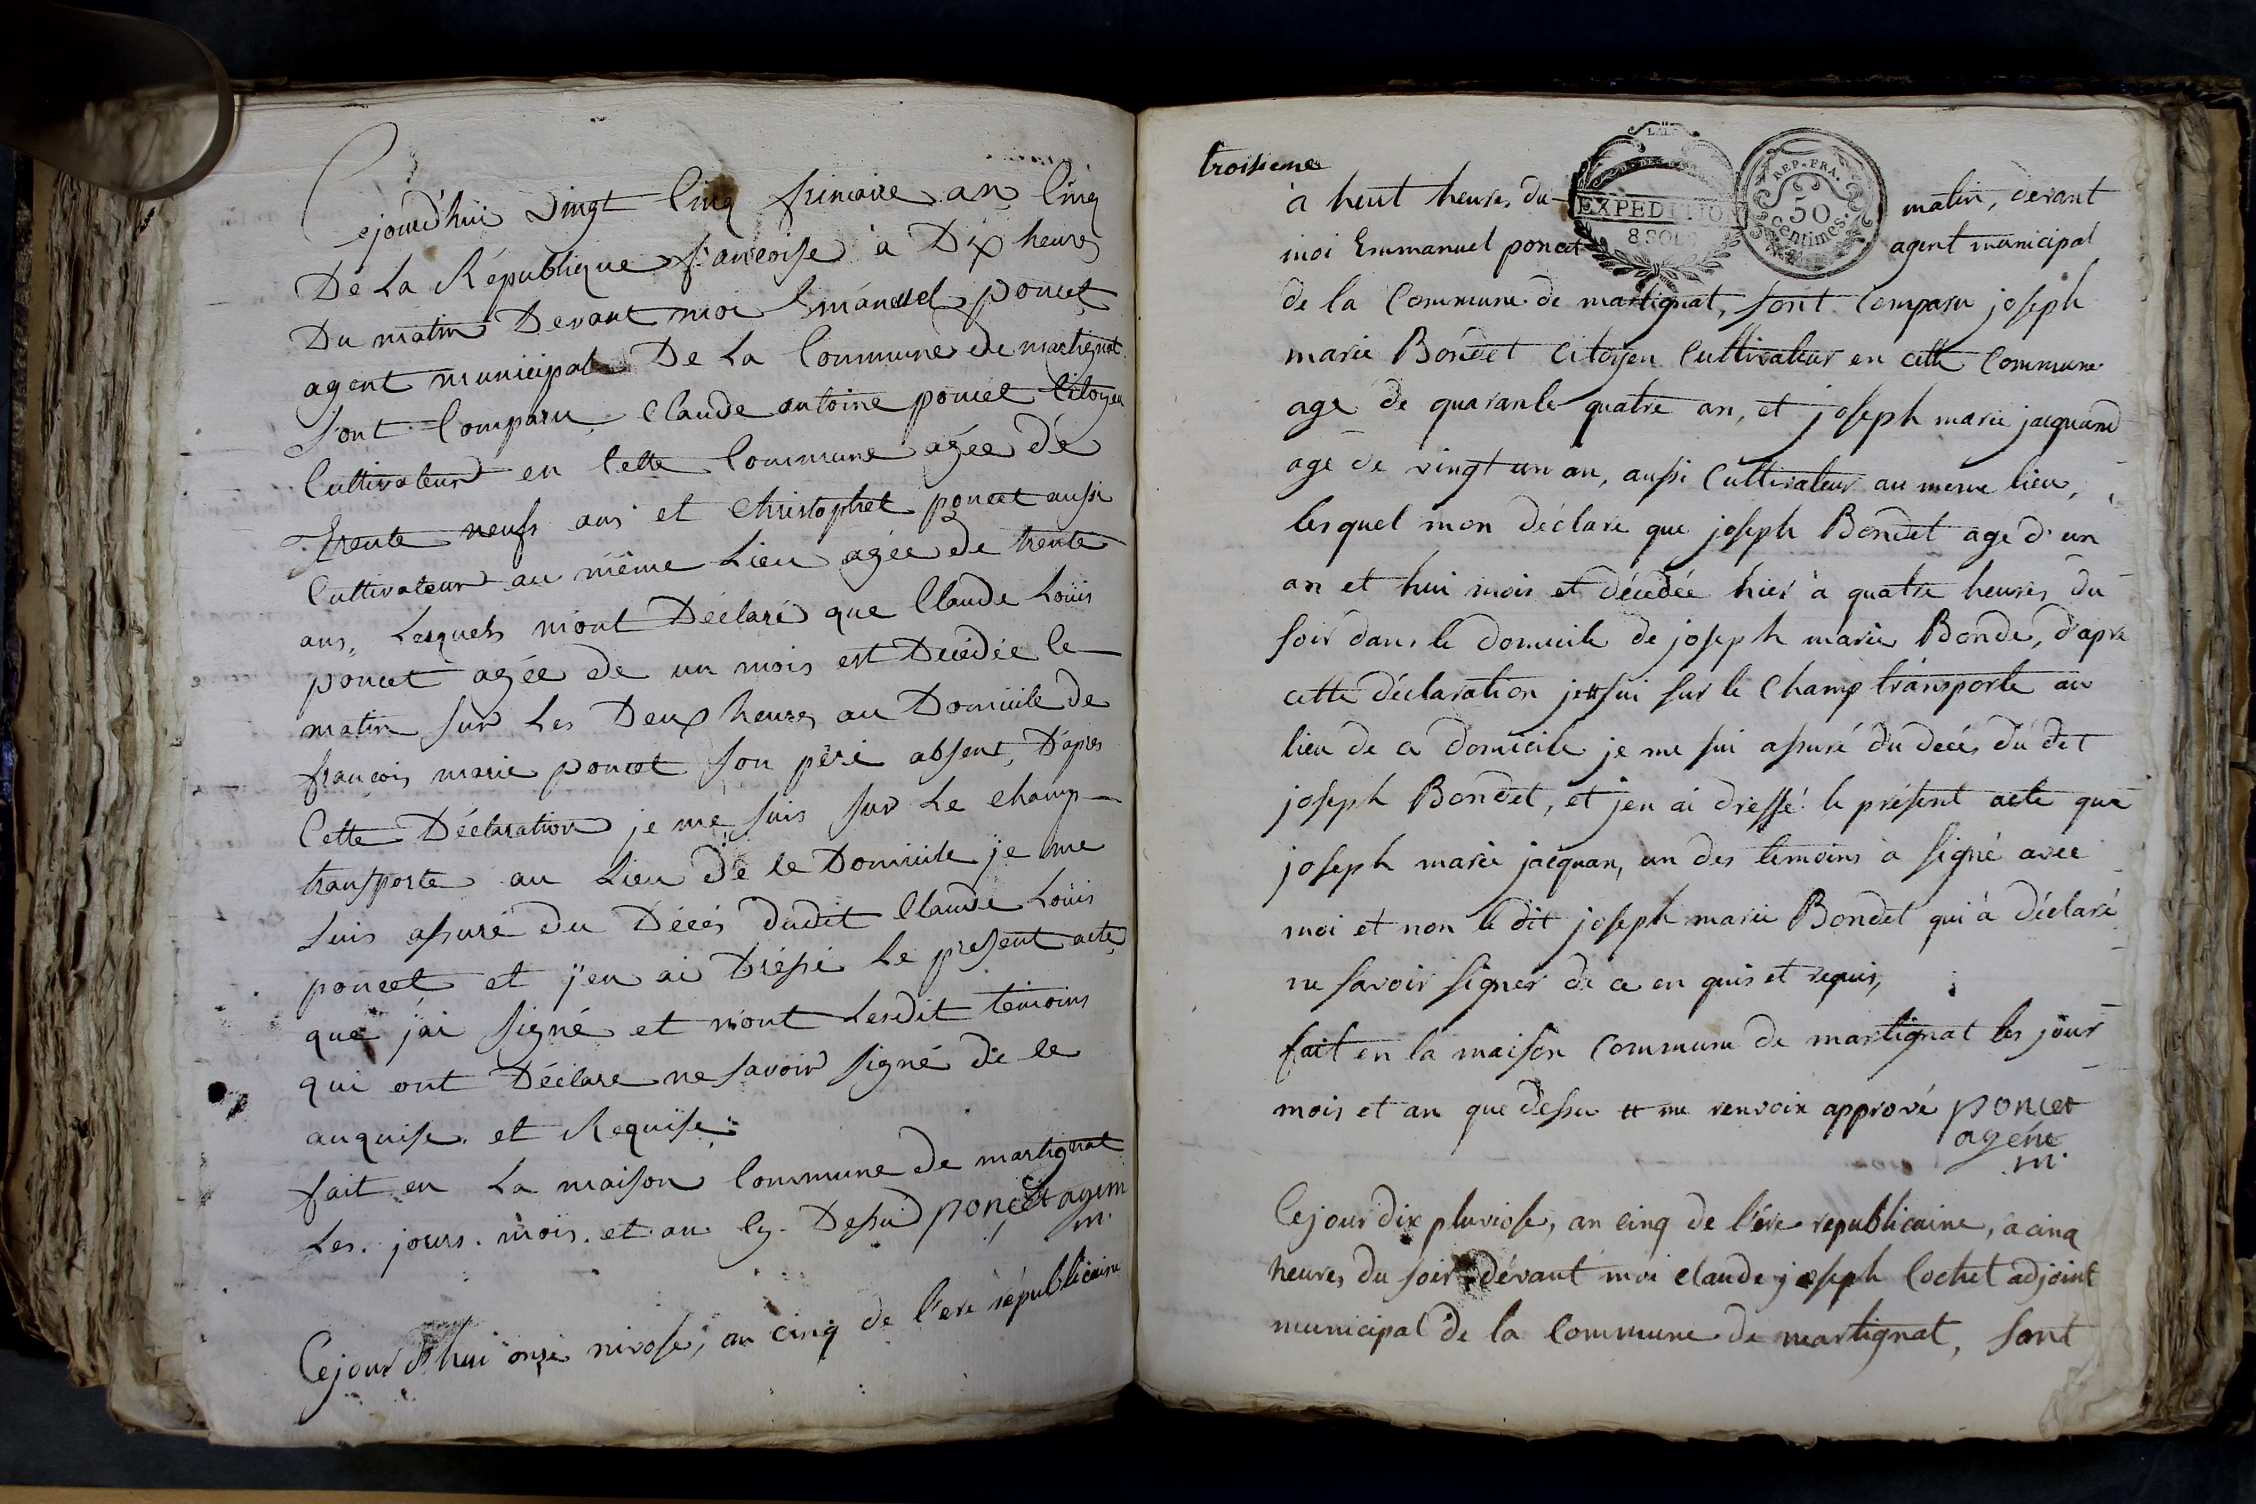 Cejourd'hui vingt Cinq frimaire an Cinq
De La République francoise à Dix heures
Du matin Devant moi Emánuel poncet
agent municipal De La Commune de martignat
sont Comparu Claude antoine poncet Citoyen
Cultivateur en Cette Commune agée De
Trente neufs ans et Christophet poncet aussi
Cultivateur au même Lieu agée de trente
ans, Lesquels m'ont Déclaré que Claude Loüis
poncet agée de un mois est Decédée le
matin sur Les Deux heures au Domicile de
francois marie poncet son père absent, D'apres
Cette Déclaration je me suis sur Le champ
transporte au Lieu de ce Domicile je me
suis assuré du Décés dudit Claude Loüis
poncet et j'en ai Dréssé Le present acte
que j'ai signé et nont Lesdit temoins
qui ont Déclare ne savoir signé de ce
anquise et Requise
fait en La maison Commune de martignat
Les jours mois et an Cy Dessu poncet agent
m.
Cejourd'hui onze nivose, an cinq de l'ere républicaine
troisieme
LA LOI
EXPEDITION
8 SOLS
REP. FRA.
50
Centimes.
à heut heures du matin, devant
moi Emmanuel poncet agent municipal
de la Commune de martignat, sont Comparu joseph
marie Bondet Citoyen Cultivateur en cette Commune
age de quarante quatre an, et joseph marie jacquand
age de vingt un an, aussi Cultivateur au meme lieu,
lesquel mon déclare que joseph Bondet age d'un
an et hui mois et décedée hier à quatre heures du
soir dans le domicile de joseph marie Bonde, d'apre
cette déclaration je # sui sur le Champ transporte au
lieu de ce domicile je me sui assuré du decés du dit
joseph Bondet, et jen ai dressé le présent acte que
joseph marie jacquan, un des temoins a signé avec
moi et non le dit joseph marie Bondet qui à déclaré
ne savoir signer de ce en quis et requis,
fait en la maison Commune de martignat les jour
mois et an que dessu # me renvoix apprové poncet
agent
m.
Cejour dix pluviose, an cinq de l'ére republicaine, a cinq
heures du soir dévant moi claude joseph Cochet adjoint
municipal de la Commune de martignat, sont